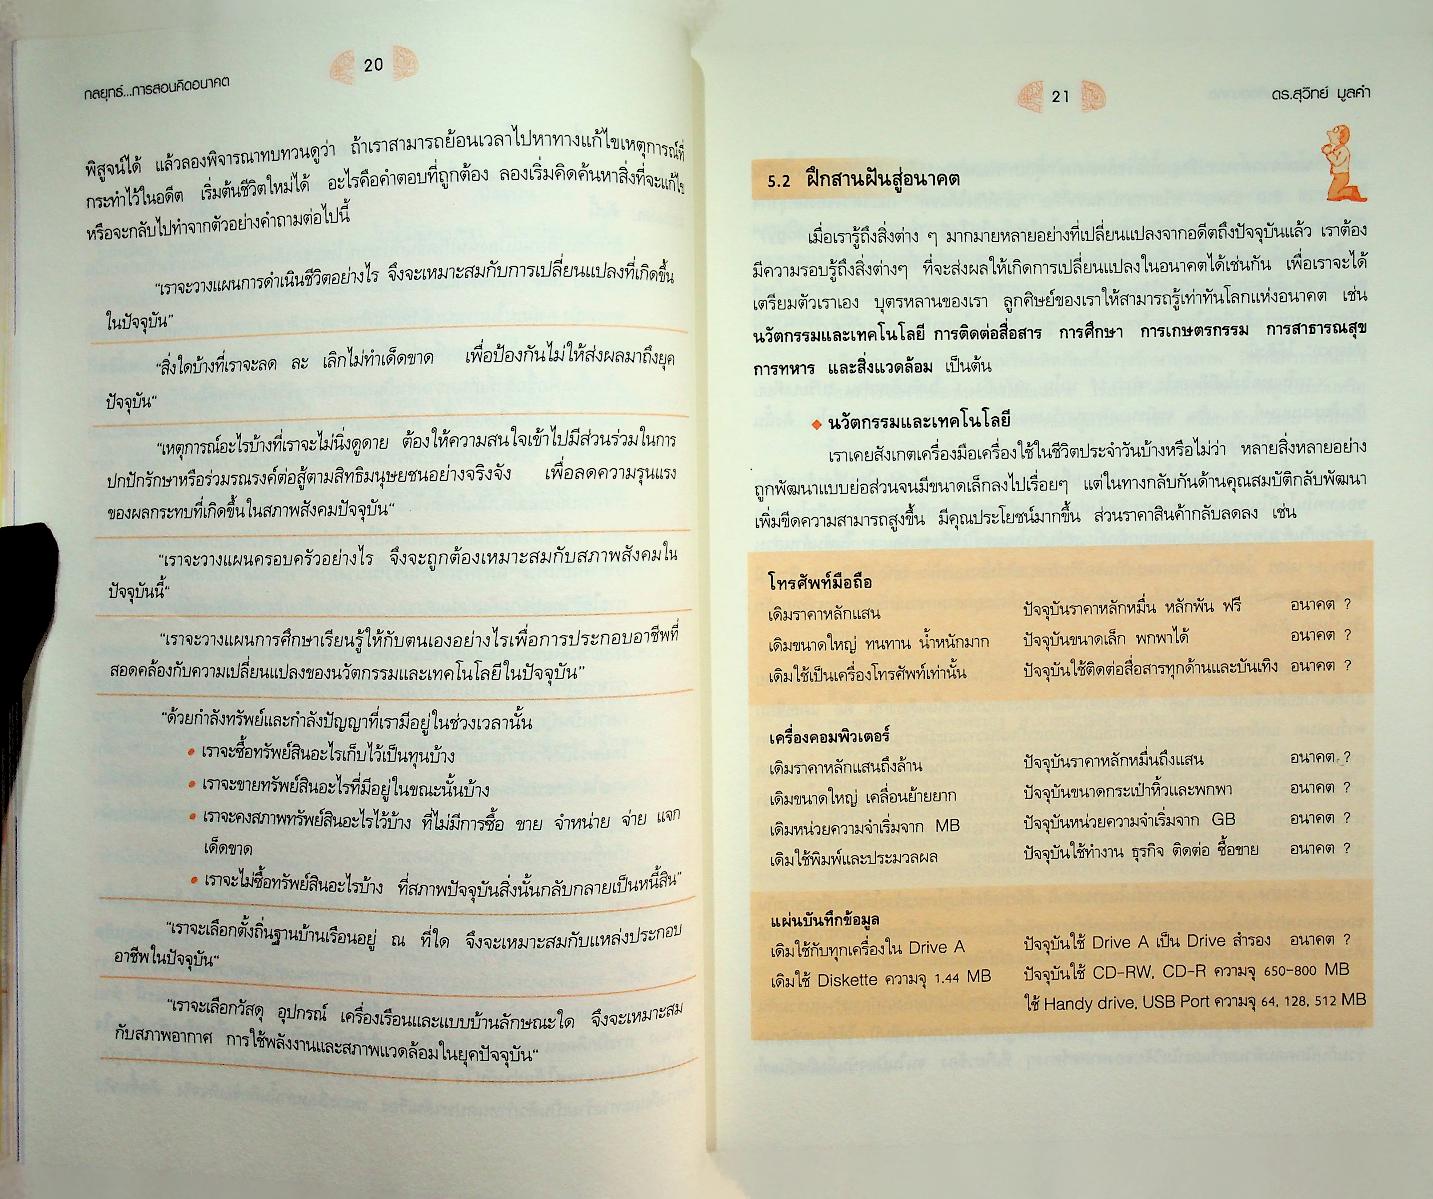 20
กลยุทธ์...การสอนคิดอนาคต
พิสูจน์ได้ แล้วลองพิจารณาทบทวนดูว่า ถ้าเราสามารถย้อนเวลาไปหาทางแก้ไขเหตุการณ์ที่
กระทำไว้ในอดีต เริ่มต้นชีวิตใหม่ได้ อะไรคือคำตอบที่ถูกต้อง ลองเริ่มคิดค้นหาสิ่งที่จะแก้ไข
หรือจะกลับไปทำจากตัวอย่างคำถามต่อไปนี้
“เราจะวางแผนการดำเนินชีวิตอย่างไร จึงจะเหมาะสมกับการเปลี่ยนแปลงที่เกิดขึ้น
ในปัจจุบัน“
“สิ่งใดบ้างที่เราจะลด ละ เลิกไม่ทำเด็ดขาด เพื่อป้องกันไม่ให้ส่งผลมาถึงยุค
ปัจจุบัน“
“เหตุการณ์อะไรบ้างที่เราจะไม่นิ่งดูดาย ต้องให้ความสนใจเข้าไปมีส่วนร่วมในการ
ปกปักรักษาหรือร่วมรณรงค์ต่อสู้ตามสิทธิมนุษยชนอย่างจริงจัง เพื่อลดความรุนแรง
ของผลกระทบที่เกิดขึ้นในสภาพสังคมปัจจุบัน“
“เราจะวางแผนครอบครัวอย่างไร จึงจะถูกต้องเหมาะสมกับสภาพสังคมใน
ปัจจุบันนี้“
“เราจะวางแผนการศึกษาเรียนรู้ให้กับตนเองอย่างไรเพื่อการประกอบอาชีพที่
สอดคล้องกับความเปลี่ยนแปลงของนวัตกรรมและเทคโนโลยีในปัจจุบัน”
“ด้วยกำลังทรัพย์และกำลังปัญญาที่เรามีอยู่ในช่วงเวลานั้น
• เราจะซื้อทรัพย์สินอะไรเก็บไว้เป็นทุนบ้าง
• เราจะขายทรัพย์สินอะไรที่มีอยู่ในขณะนั้นบ้าง
• เราจะคงสภาพทรัพย์สินอะไรไว้บ้าง ที่ไม่มีการซื้อ ขาย จำหน่าย จ่าย แจก
เด็ดขาด
• เราจะไม่ซื้อทรัพย์สินอะไรบ้าง ที่สภาพปัจจุบันสิ่งนั้นกลับกลายเป็นหนี้สิน”
“เราจะเลือกตั้งถิ่นฐานบ้านเรือนอยู่ ณ ที่ใด จึงจะเหมาะสมกับแหล่งประกอบ
อาชีพในปัจจุบัน“
“เราจะเลือกวัสดุ อุปกรณ์ เครื่องเรือนและแบบบ้านลักษณะใด จึงจะเหมาะสม
กับสภาพอากาศ การใช้พลังงานและสภาพแวดล้อมในยุคปัจจุบัน“
21
ดร.สุวิทย์ มูลคำ
5.2 ฝึกสานฝันสู่อนาคต
เมื่อเรารู้ถึงสิ่งต่าง ๆ มากมายหลายอย่างที่เปลี่ยนแปลงจากอดีตถึงปัจจุบันแล้ว เราต้อง
มีความรอบรู้ถึงสิ่งต่างๆ ที่จะส่งผลให้เกิดการเปลี่ยนแปลงในอนาคตได้เช่นกัน เพื่อเราจะได้
เตรียมตัวเราเอง บุตรหลานของเรา ลูกศิษย์ของเราให้สามารถรู้เท่าทันโลกแห่งอนาคต เช่น
นวัตกรรมและเทคโนโลยี การติดต่อสื่อสาร การศึกษา การเกษตรกรรม การสาธารณสุข
การทหาร และสิ่งแวดล้อม เป็นต้น
◆ นวัตกรรมและเทคโนโลยี
เราเคยสังเกตเครื่องมือเครื่องใช้ในชีวิตประจำวันบ้างหรือไม่ว่า หลายสิ่งหลายอย่าง
ถูกพัฒนาแบบย่อส่วนจนมีขนาดเล็กลงไปเรื่อยๆ แต่ในทางกลับกันด้านคุณสมบัติกลับพัฒนา
เพิ่มขีดความสามารถสูงขึ้น มีคุณประโยชน์มากขึ้น ส่วนราคาสินค้ากลับลดลง เช่น
โทรศัพท์มือถือ
เดิมราคาหลักแสน ปัจจุบันราคาหลักหมื่น หลักพัน ฟรี อนาคต ?
เดิมขนาดใหญ่ ทนทาน น้ำหนักมาก ปัจจุบันขนาดเล็ก พกพาได้ อนาคต ?
เดิมใช้เป็นเครื่องโทรศัพท์เท่านั้น ปัจจุบันใช้ติดต่อสื่อสารทุกด้านและบันเทิง อนาคต ?
เครื่องคอมพิวเตอร์
เดิมราคาหลักแสนถึงล้าน ปัจจุบันราคาหลักหมื่นถึงแสน อนาคต ?
เดิมขนาดใหญ่ เคลื่อนย้ายยาก ปัจจุบันขนาดกระเป๋าหิ้วและพกพา อนาคต ?
เดิมหน่วยความจำเริ่มจาก MB ปัจจุบันหน่วยความจำเริ่มจาก GB อนาคต ?
เดิมใช้พิมพ์และประมวลผล ปัจจุบันใช้ทำงาน ธุรกิจ ติดต่อ ซื้อขาย อนาคต ?
แผ่นบันทึกข้อมูล
เดิมใช้กับทุกเครื่องใน Drive A ปัจจุบันใช้ Drive A เป็น Drive สำรอง อนาคต ?
เดิมใช้ Diskette ความจุ 1.44 MB ปัจจุบันใช้ CD-RW, CD-R ความจุ 650-800 MB
ใช้ Handy drive, USB Port ความจุ 64, 128, 512 MB